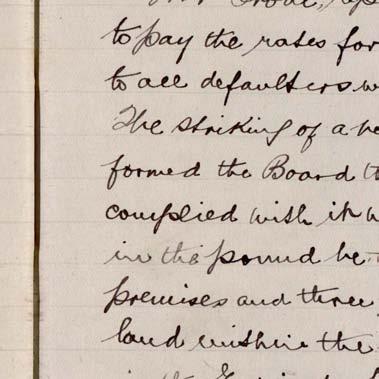 to pay the rates for
to all defaulters w
The striking of a
formed the Board
complied with it
in the pound be
premises and three
land within the